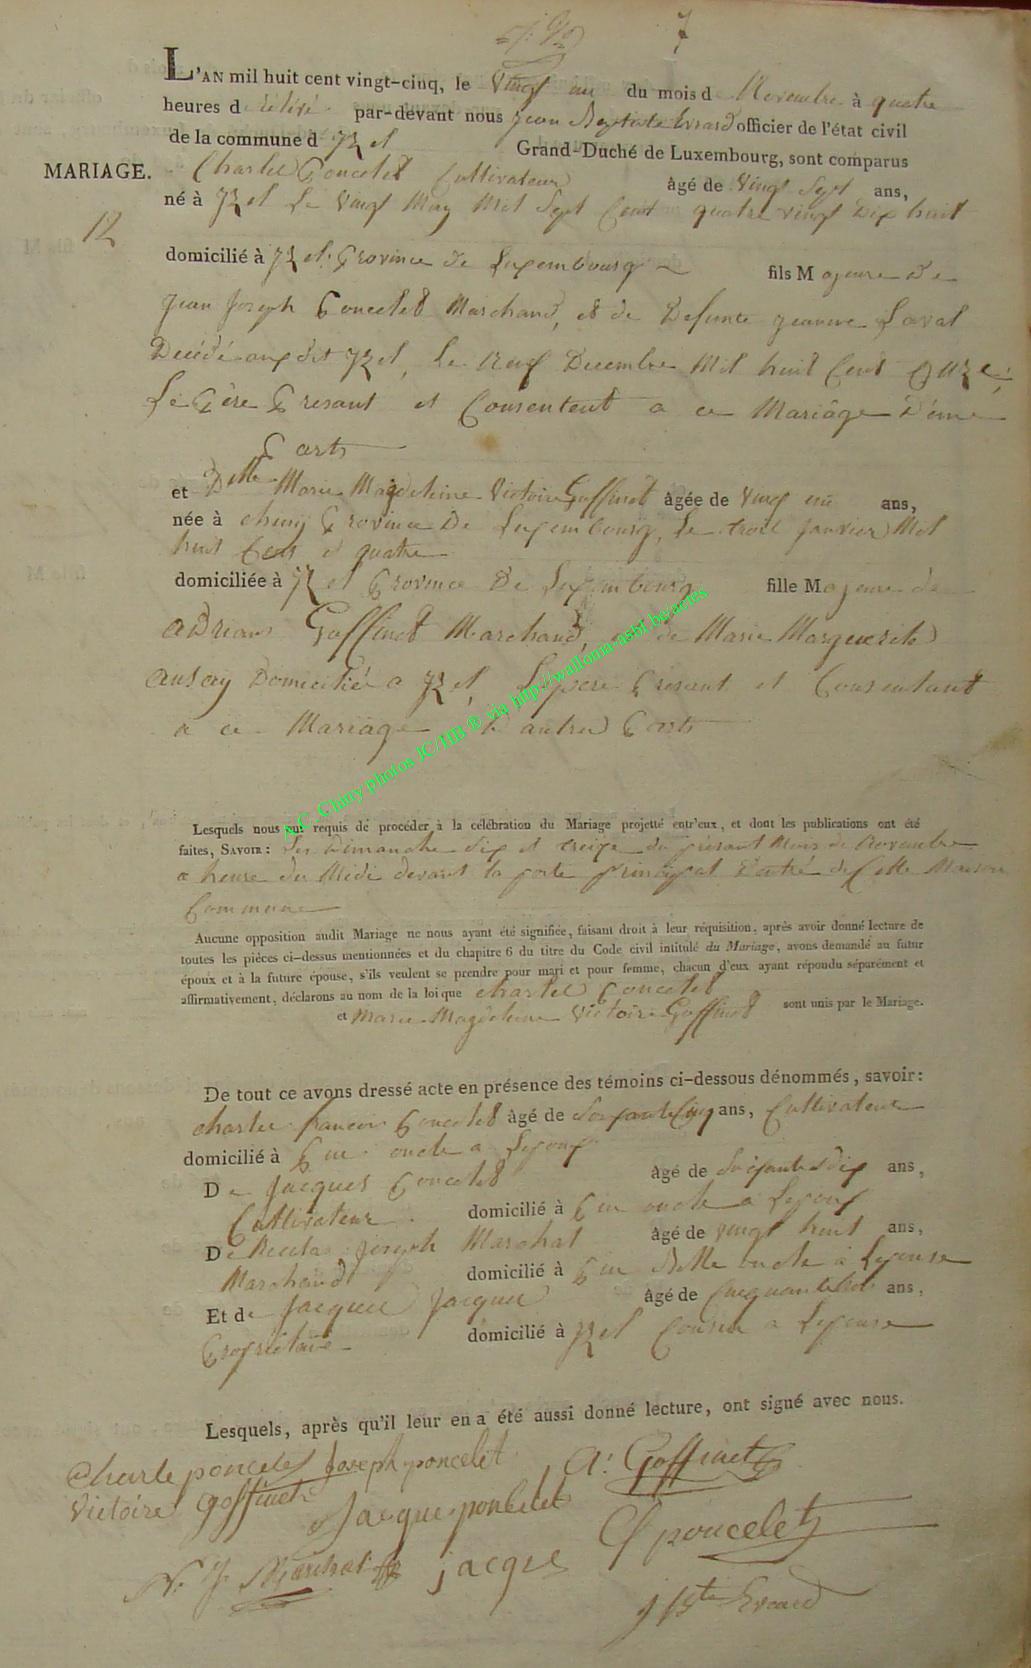 7
L'AN mil huit cent vingt-cinq, le Vingt un du mois d Novembre à quatre
heures d Rélévé par-devant nous Jean Baptiste Evrard officier de l'état civil
de la commune d Izel Grand-Duché de Luxembourg, sont comparus
MARIAGE. Charles Poncelet Cultivateur âgé de Vingt Sept ans,
né à Izel Le Vingt May Mil Sept Cent quatre vingt Dix huit
12
domicilié à Izel Province de Luxembourg fils Majeure De
Jean Joseph Poncelet Marchand, et de Defunte Jeanne Laval
Décédé audit Izel, Le Neuf Decembre Mil huit Cent Onze,
Le Père Presant et Consentent a ce Mariâge D'une
Parts
et Delle Marie Magdeleine Victoire Goffinet âgée de Vingt un ans,
née à chiny Province De Luxembourg, Le trois Janvier Mil
huit Cens et quatre
domiciliée à Izel Province De Luxembourg fille Majeure de
Adrian Goffinet Marchand, et de Marie Marguerite
Ansay Domicilié a Izel, Le pere Présant et Consentant
a ce Mariage D'autre Parts
A.C. Chiny photos JC/HB ® via http://wallonia-asbl.be/actes
Lesquels nous ont requis de procéder à la célébration du Mariage projetté entr'eux, et dont les publications ont été
faites, SAVOIR: Les Dimanche Six et treize du présant Mois de Novembre
a heure du Midi devant la porte principal D'entré de Cette Maison
Commune
Aucune opposition audit Mariage ne nous ayant été signifiée, faisant droit à leur réquisition, après avoir donné lecture de
toutes les pièces ci-dessus mentionnées et du chapitre 6 du titre du Code civil intitulé du Mariage, avons demandé au futur
époux et à la future épouse, s'ils veulent se prendre pour mari et pour femme, chacun d'eux ayant répondu séparément et
affirmativement, déclarons au nom de la loi que charles Poncelet
et Marie Magdeleine Victoire Goffinet sont unis par le Mariage.
De tout ce avons dressé acte en présence des témoins ci-dessous dénommés, savoir:
charles francois Poncelet âgé de Soixante Cinq ans, Cultivateur
domicilié à Pin oncle a Lepoux
De Jacques Poncelet âgé de Soixante dix ans,
Cultivateur domicilié à Pin oncle a Lepoux
De Nicolas Joseph Marchal âgé de vingt huit ans,
Marchand domicilié à Pin Belle oncle à Lepouse
Et de Jacques Jacques âgé de ans,
Propriétaire domicilié à Izel Cousin a Lepouse
Lesquels, après qu'il leur en a été aussi donné lecture, ont signé avec nous.
Charle poncelet Joseph poncelet A: Goffinet
Victoire Goffinet Jacque poncelet C F poncelet
N: J: Marchal jacque
J Bte Evrard